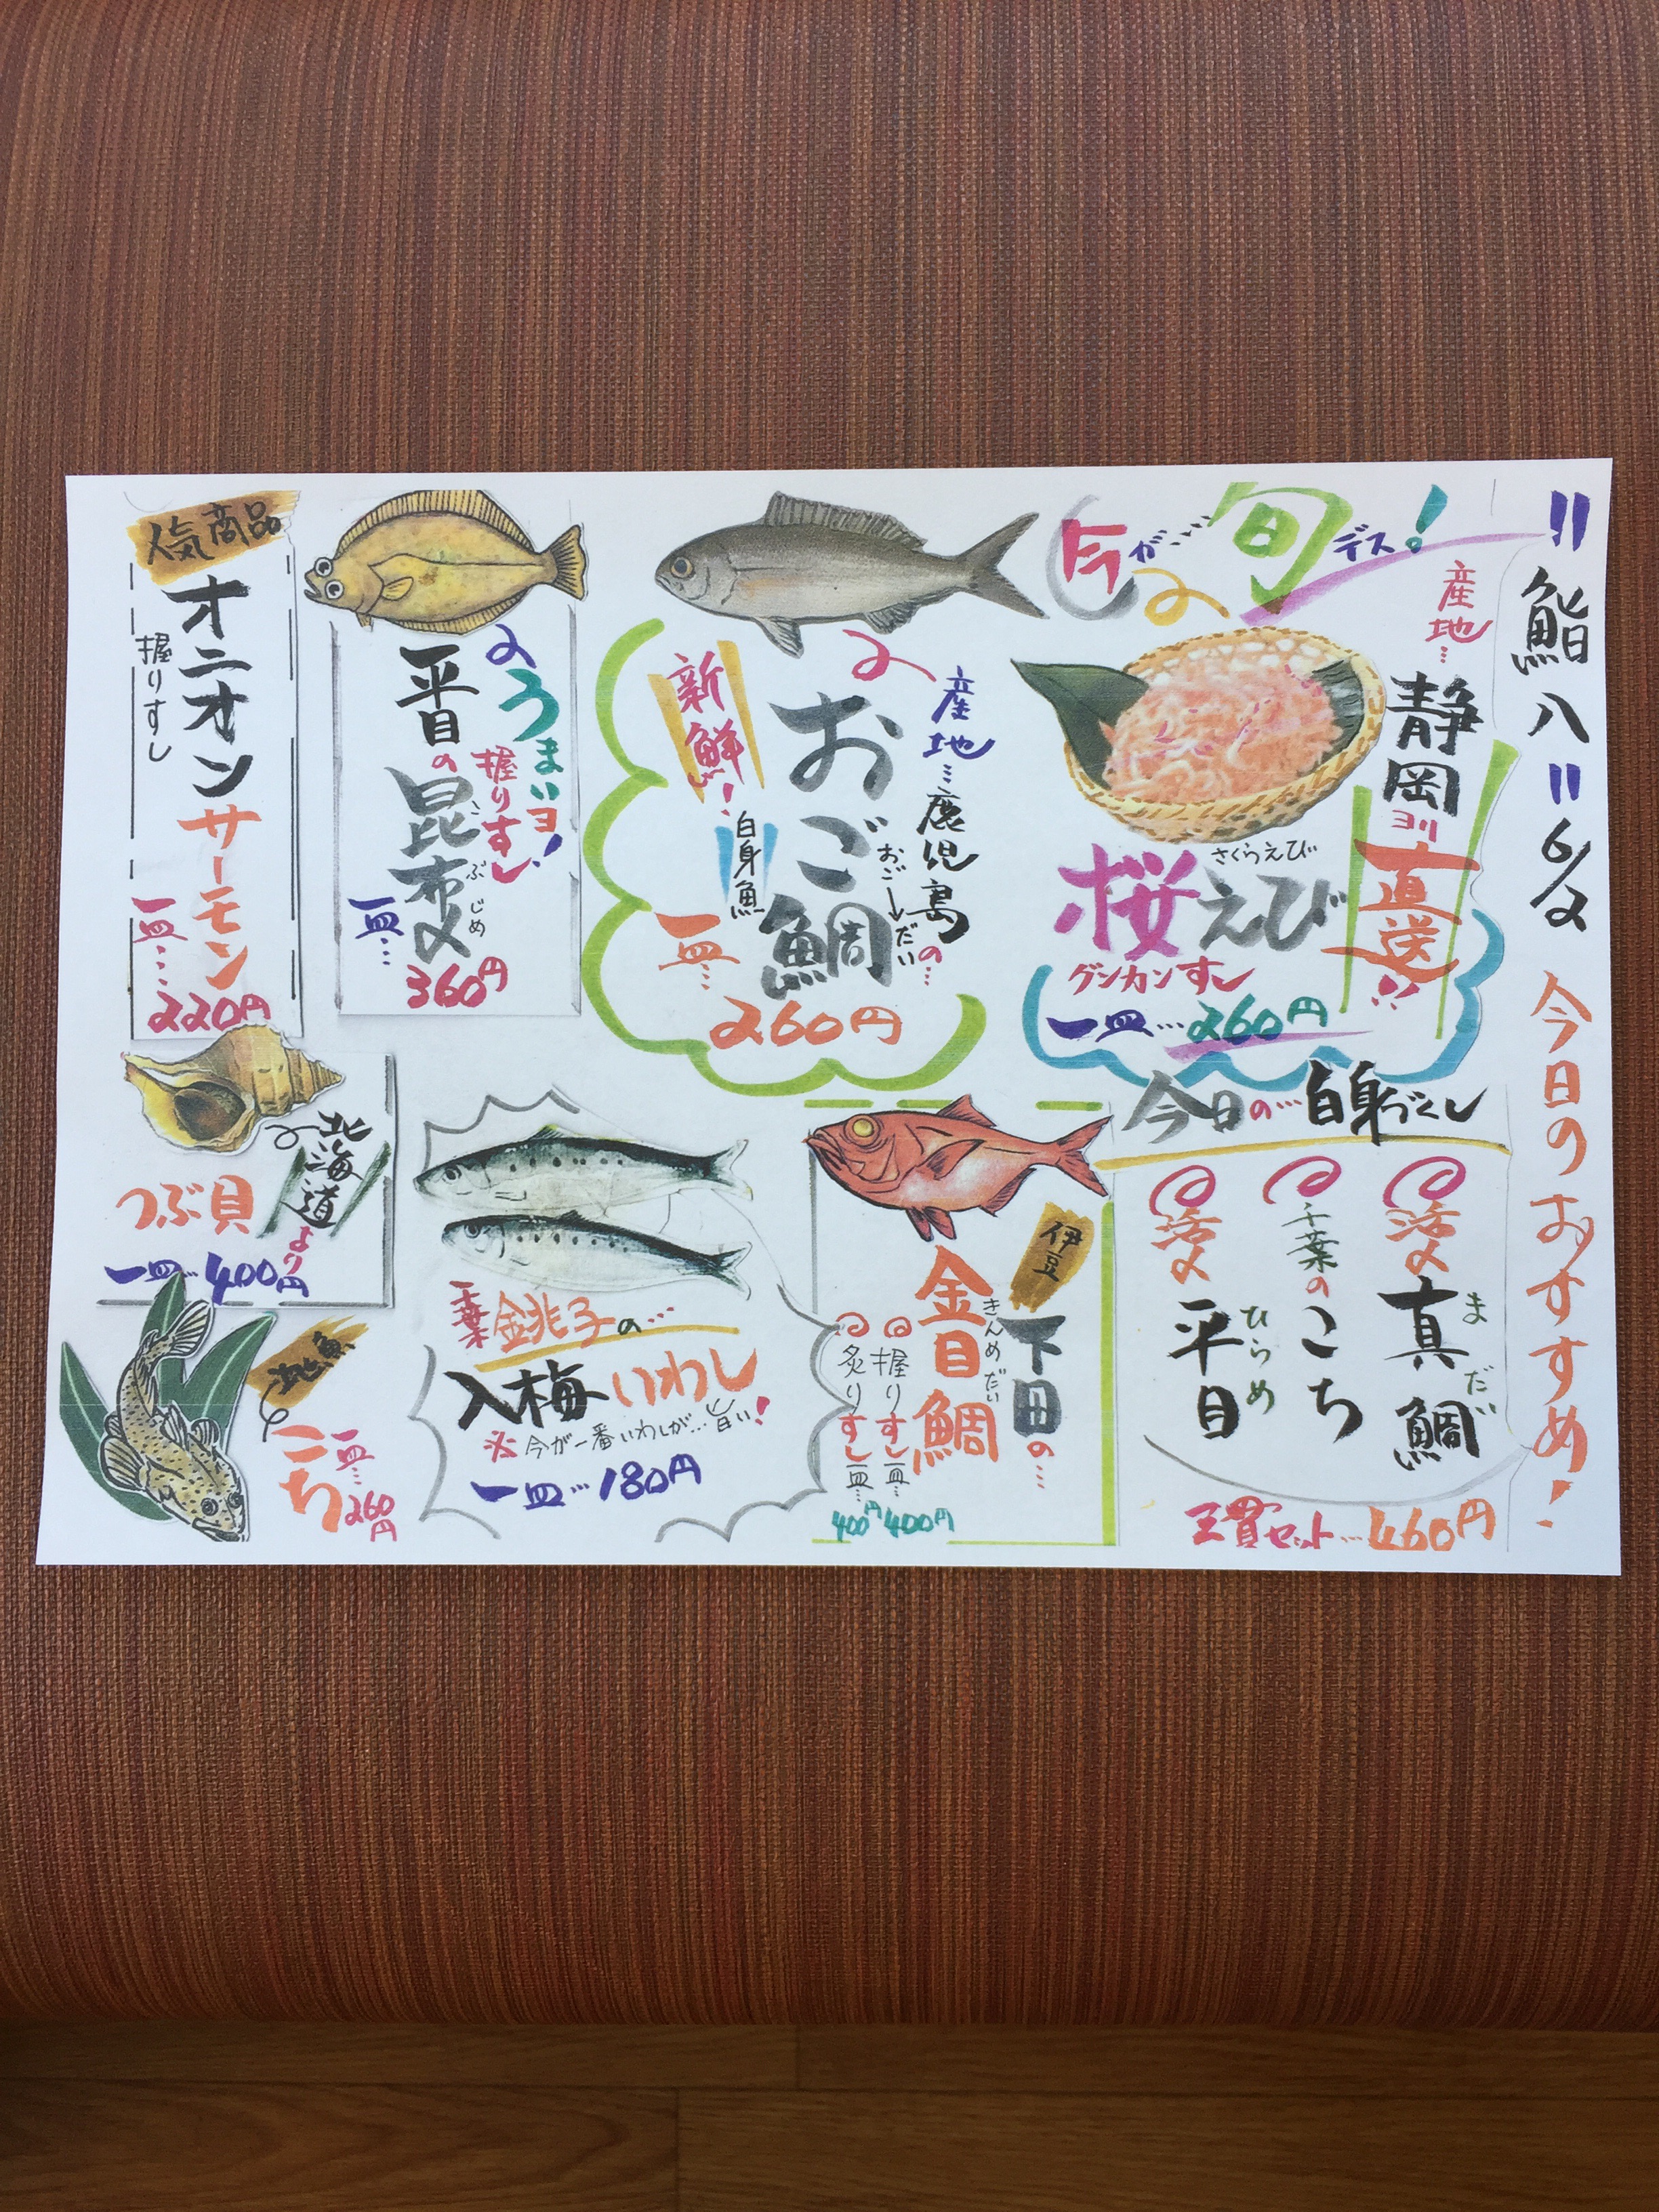 〃鮨八〃 6/2 今日のおすすめ!
今が…旬デス!
産地…
静岡ヨリ
直送!!
さくらえび
桜えび
グンカンすし
一皿…260円
産地…鹿児島の…
おご鯛
おご→だい
新鮮!
白身魚
一皿…
260円
うまいヨ!
握りすし
平目の昆布〆
こぶじめ
一皿…
360円
人気商品
オニオンサーモン
握りすし
一皿…
220円
今日の…白身づくし
活〆真鯛
まだい
千葉のこち
活〆平目
ひらめ
三貫セット…460円
伊豆
下田の…
金目鯛
きんめだい
握りすし一皿…400円
炙りすし一皿…400円
千葉銚子の…
入梅いわし
※今が一番いわしが…旨い!
一皿…180円
北海道より
つぶ貝
一皿…400円
地魚
こち
一皿…260円